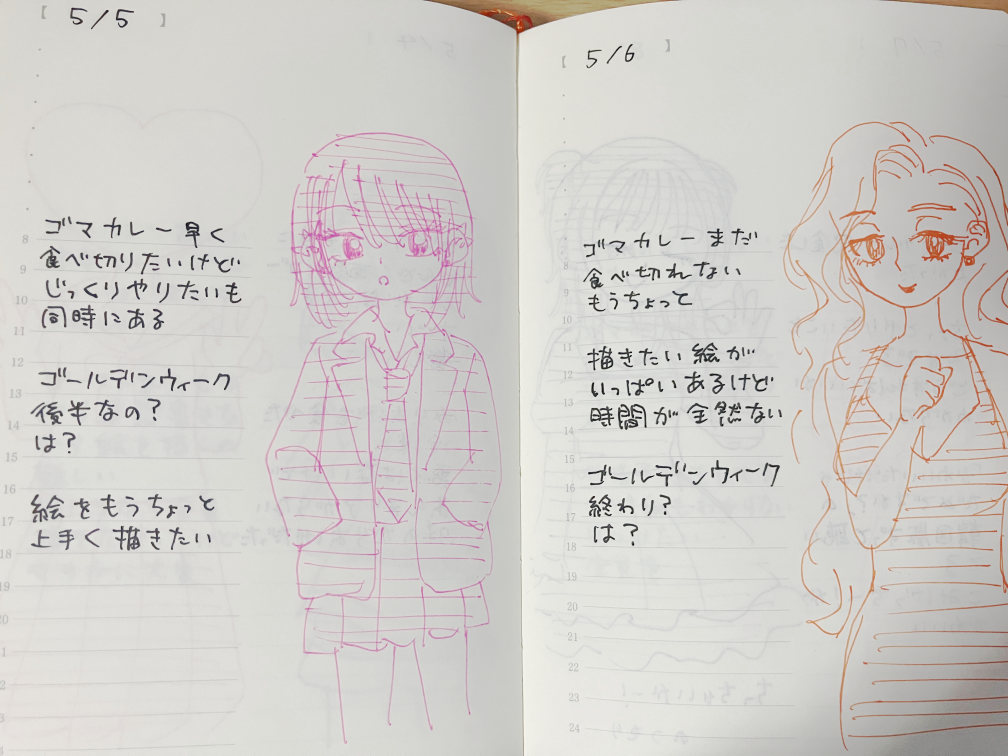 【 5/5 】
8
9
10
11
12
13
14
15
16
17
18
19
20
ゴマカレー早く
食べ切りたいけど
じっくりやりたいも
同時にある
ゴールデンウィーク
後半なの?
は?
絵をもうちょっと
上手く描きたい
【 5/6 】
8
9
10
11
12
13
14
15
16
17
18
19
20
21
22
23
24
ゴマカレーまだ
食べ切れない
もうちょっと
描きたい絵が
いっぱいあるけど
時間が全然ない
ゴールデンウィーク
終わり?
は?